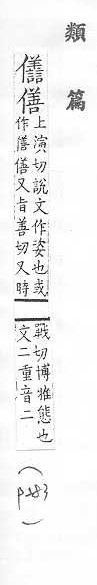 類篇
僐
僐
上演切説文作姿也或
作僐僐又旨善切又時
戰切博雅態也
文二重音二
(p483)